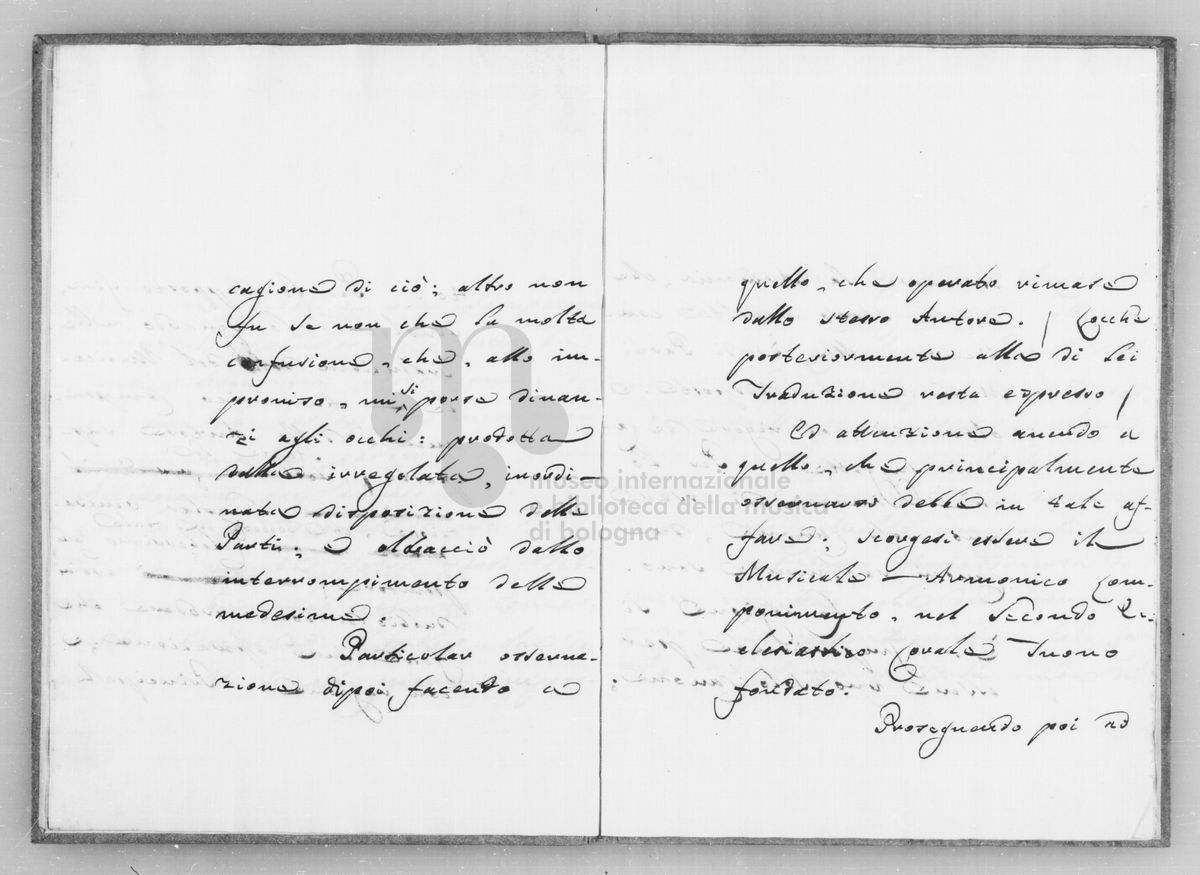 cagione di ciò; altro non
fu se non che la molta
confusione, che, allo im-
proviso, mi si porse dinan-
zi agli occhi: prodotta
dalla irregolata, inordi-
nata disposizione delle
Parti, e dallo
interrompimento delle
medesime.
Particolar osserva-
zione dipoi facendo a
quello, che operato rimase
dallo stesso Autore. / Locchè
posteriormente alla di Lei
Traduzione resta espresso /
Ed attenzione avendo a
quello, che principalmente
osservarsi debbe in tale af-
fare; scorgesi essere il
Musicale - Armonico Com-
ponimento, nel Secondo Ec-
clesiastico Corale Tuono
fondato.
Proseguendo poi ad
museo internazionale
e biblioteca della musica
di bologna